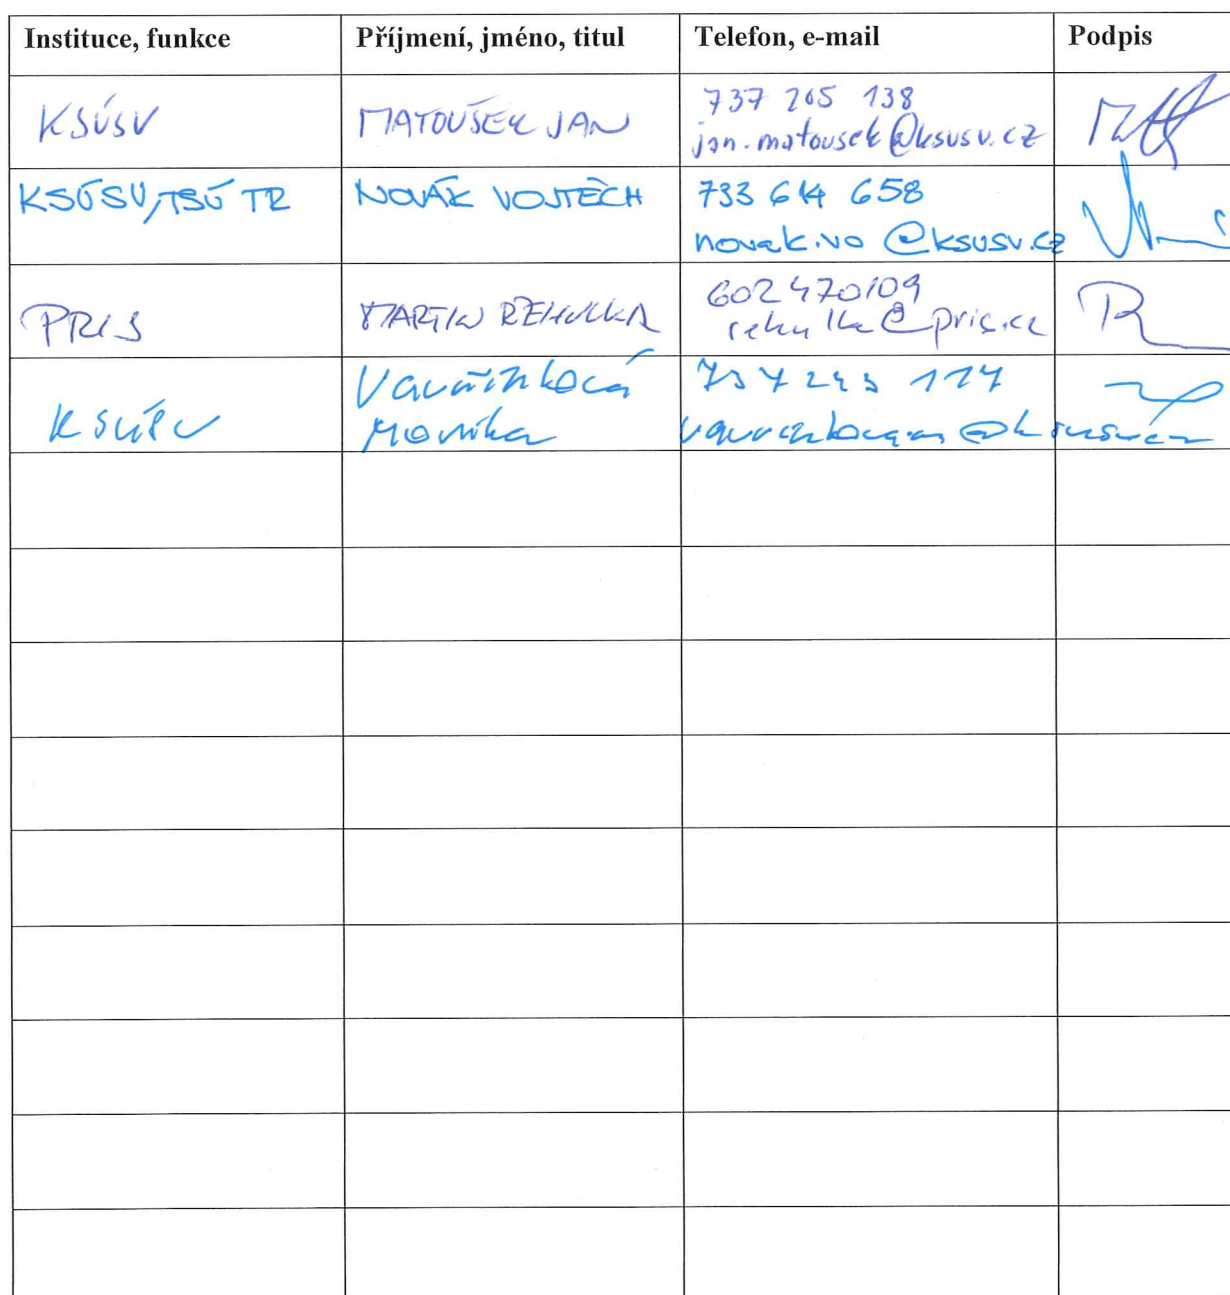 Instituce, funkce Příjmení, jméno, titul Telefon, e-mail Podpis
KSÚSV MATOUŠEK JAN 737 265 138
jan.matousek@ksusv.cz
KSÚSV, TSÚ TR NOVÁK VOJTĚCH 733 614 658
novak.vo@ksusv.cz
PRIS MARTIN ŘEHULKA 602 470109
rehulka@pris.cz
Vavřínková
KSÚSV Monika